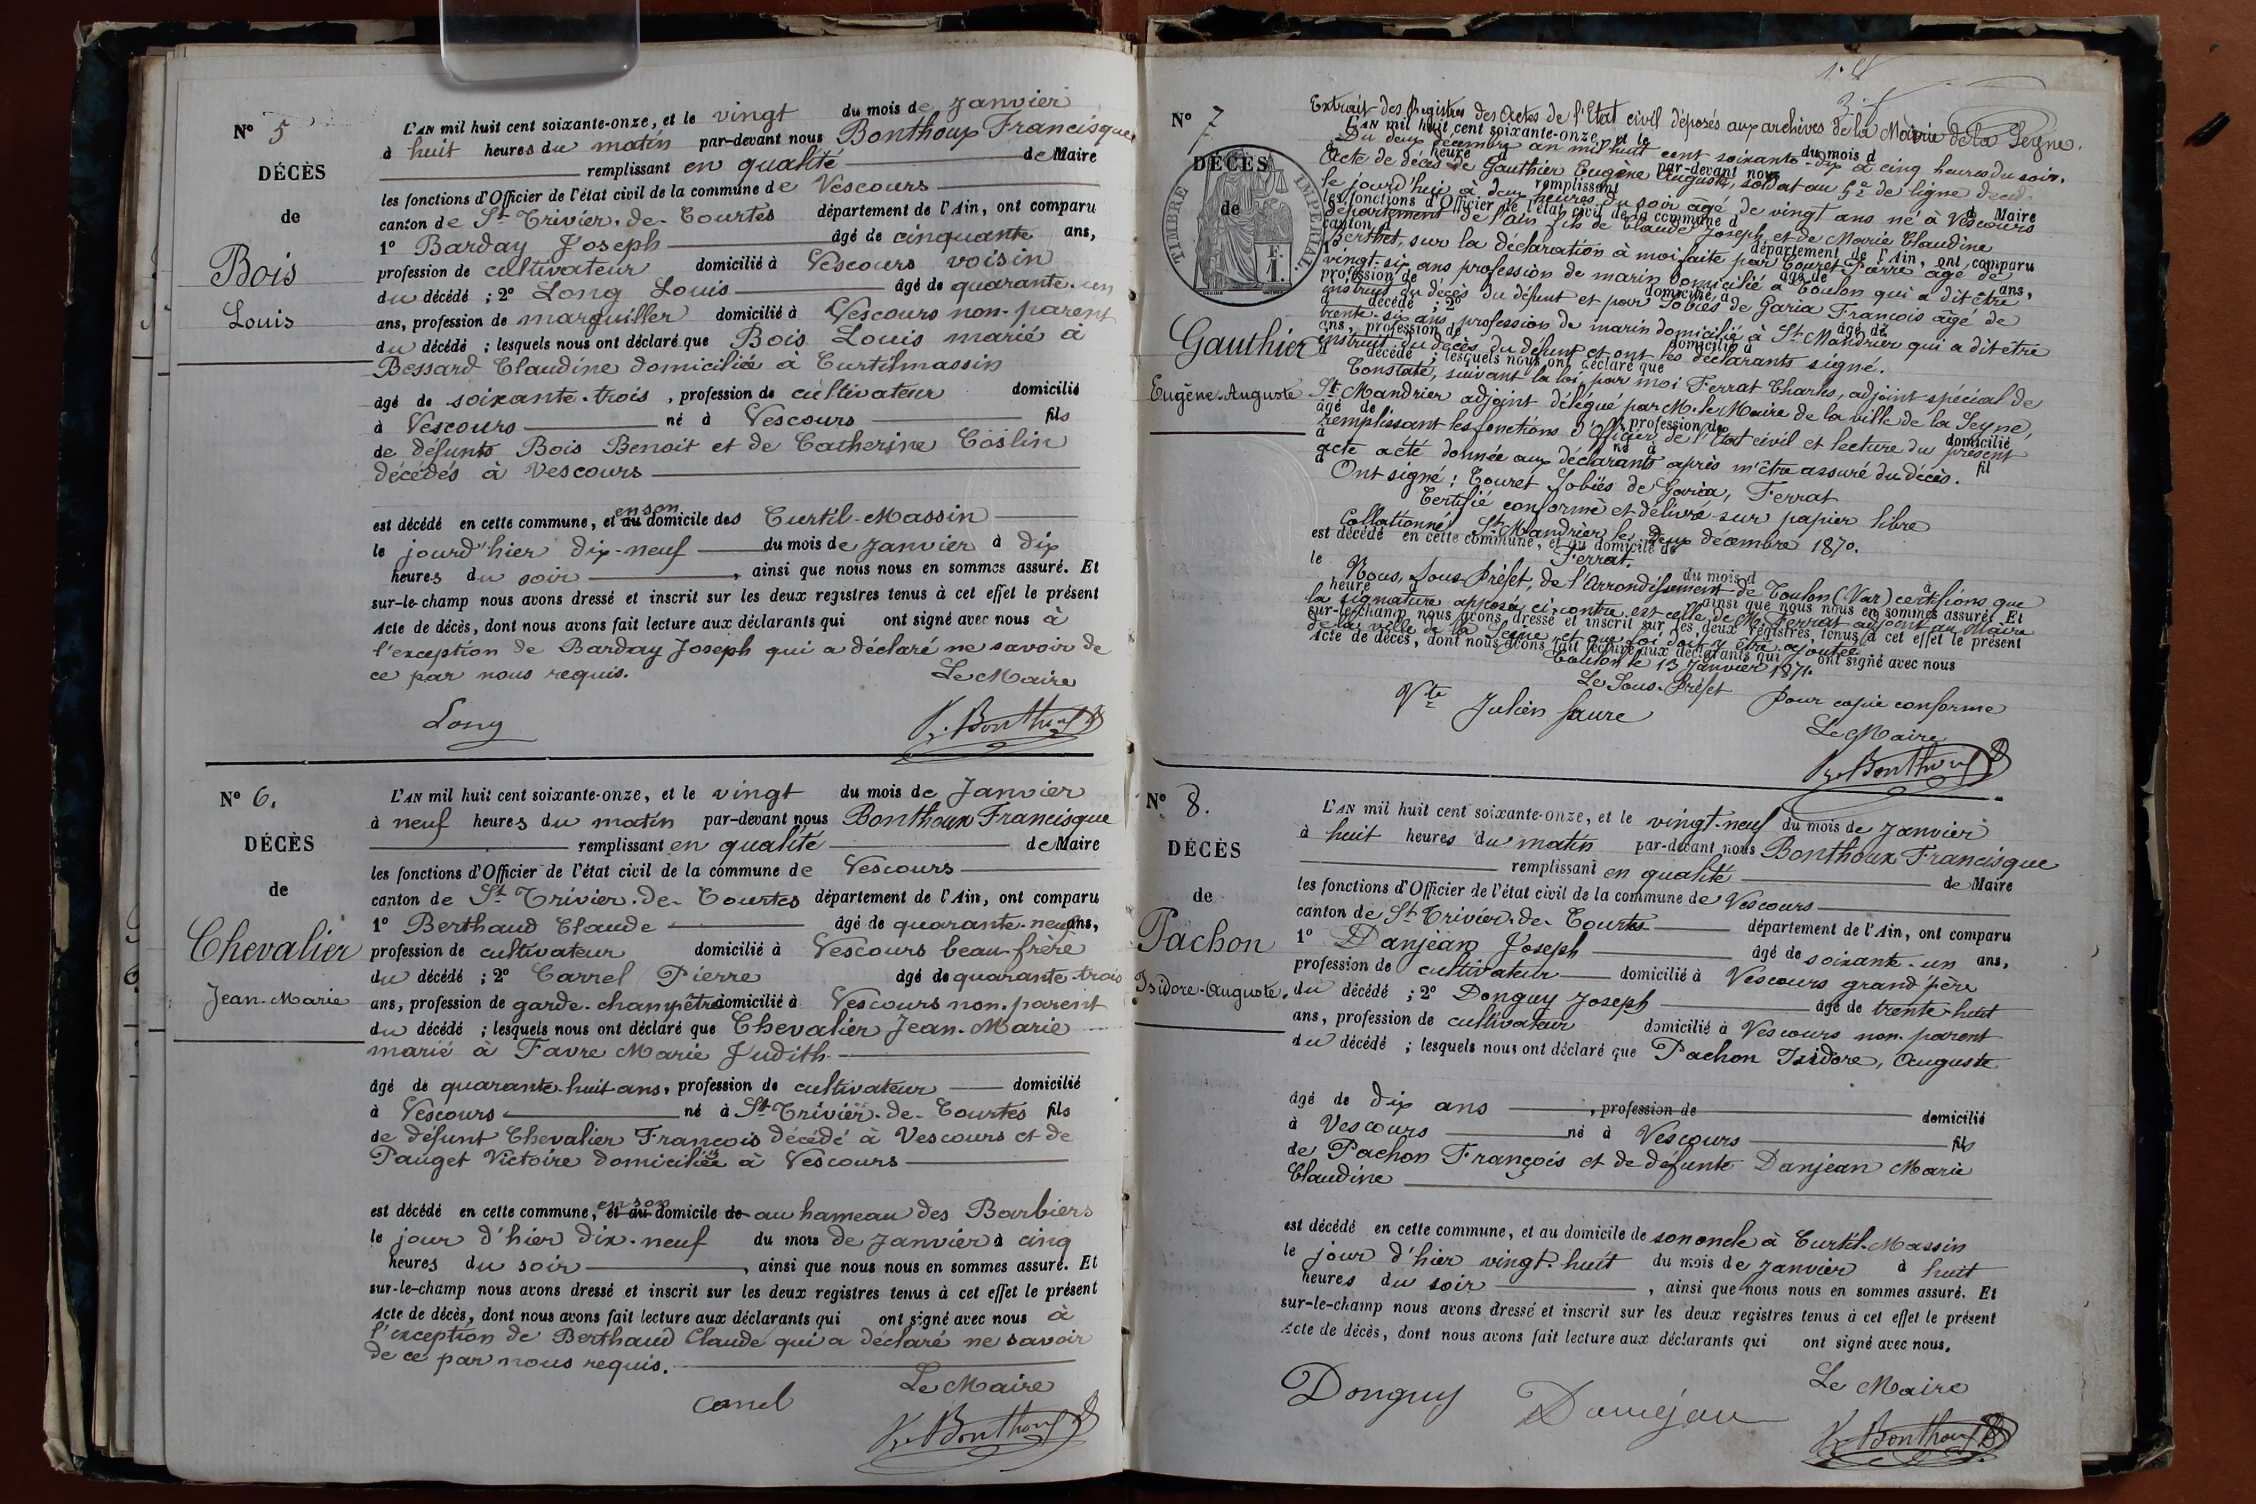 N° 5
DÉCÈS
de
Bois
Louis
L'AN mil huit cent soixante-onze, et le vingt du mois de Janvier
à huit heures du matin par-devant nous Bonthoux Francisque
remplissant en qualité de Maire
les fonctions d'Officier de l'état civil de la commune de Vescours
canton de St Trivier-de-Courtes département de l'Ain, ont comparu
1° Barday Joseph âgé de cinquante ans,
profession de cultivateur domicilié à Vescours voisin
du décédé ; 2° Long Louis âgé de quarante-un
ans, profession de marguiller domicilié à Vescours non-parent
du décédé ; lesquels nous ont déclaré que Bois Louis marié à
Bessard Claudine domiciliée à Curtilmassin
âgé de soixante-trois, profession de cultivateur domicilié
à Vescours né à Vescours fils
de défunts Bois Benoit et de Catherine Coslin
décédés à Vescours
est décédé en cette commune, et au en son domicile des Curtil-Massin
le jourd'hier dix-neuf du mois de Janvier à dix
heures du soir, ainsi que nous nous en sommes assuré. Et
sur-le-champ nous avons dressé et inscrit sur les deux registres tenus à cet effet le présent
Acte de décès, dont nous avons fait lecture aux déclarants qui ont signé avec nous à
l'exception de Barday Joseph qui a déclaré ne savoir de
ce par nous requis. Le Maire
Long Fr. Bonthoux
N° 6.
DÉCÈS
de
Chevalier
Jean-Marie
L'AN mil huit cent soixante-onze, et le vingt du mois de Janvier
à neuf heures du matin par-devant nous Bonthoux Francisque
remplissant en qualité de Maire
les fonctions d'Officier de l'état civil de la commune de Vescours
canton de St Trivier-de-Courtes département de l'Ain, ont comparu
1° Berthaud Claude âgé de quarante-neuf ans,
profession de cultivateur domicilié à Vescours beau-frère
du décédé ; 2° Carrel Pierre âgé de quarante-trois
ans, profession de garde-champêtre domicilié à Vescours non-parent
du décédé ; lesquels nous ont déclaré que Chevalier Jean-Marie
marié à Favre Marie Judith
âgé de quarante-huit ans, profession de cultivateur domicilié
à Vescours né à St Trivier-de-Courtes fils
de défunt Chevalier François décédé à Vescours et de
Pauget Victoire domiciliée à Vescours
est décédé en cette commune, et au en son domicile de au hameau des Barbiers
le jour d'hier dix-neuf du mois de Janvier à cinq
heures du soir, ainsi que nous nous en sommes assuré. Et
sur-le-champ nous avons dressé et inscrit sur les deux registres tenus à cet effet le présent
Acte de décès, dont nous avons fait lecture aux déclarants qui ont signé avec nous à
l'exception de Berthaud Claude qui a déclaré ne savoir
de ce par nous requis.
Le Maire
Carrel Fr. Bonthoux
N° 7
DÉCÈS
de
TIMBRE IMPÉRIAL
F. 1.
Gauthier
Eugène-Auguste
Extrait des Registres des Actes de l'Etat civil déposés aux archives de la Mairie de la Seyne.
L'AN mil huit cent soixante-onze, et le du mois d
Du deux décembre an mil huit cent soixante-dix à cinq heures du soir.
à heure d par-devant nous
Acte de décès de Gauthier Eugène Auguste, soldat au 5e de ligne décd.
remplissant de Maire
le jourd'hui à deux heures du soir âgé de vingt ans né à Vescours
les fonctions d'Officier de l'état civil de la commune d
département de l'ain fils de Claude Joseph et de Marie Claudine
canton d département de l'Ain, ont comparu
Berthet, sur la déclaration à moi faite par Couret Pierre âgé de
1° âgé de ans,
vingt-six ans profession de marin domicilié à Toulon qui a dit être
profession de domicilié à
instruit du décès du défunt et pour Jobiès de Garia François âgé de
d décédé ; 2° âgé de
trente-six ans, profession de marin domicilié à St Mandrier qui a dit être
ans, profession de domicilié à
instruit du décès du défunt et ont les déclarants signé.
d décédé ; lesquels nous ont déclaré que
Constaté, suivant la loi, par moi Ferrat Charles, adjoint spécial de
St Mandrier adjoint délégué par M. le Maire de la ville de la Seyne,
âgé de , profession de domicilié
remplissant les fonctions d'Officier de l'Etat civil et lecture du présent
à né à fil
acte a été donnée aux déclarants après m'être assuré du décès.
Ont signé : Couret Jobiès de Garia, Ferrat
Certifié conforme et délivré sur papier libre
Collationné St Mandrier le deux décembre 1870.
est décédé en cette commune, et au domicile de
Ferrat.
le du mois d à
Nous, Sous-Préfet, de l'Arrondissement de Toulon (Var) certifions que
heure , ainsi que nous nous en sommes assuré. Et
la signature apposée ci-contre est celle de M. Ferrat adjoint au Maire
sur-le-champ nous avons dressé et inscrit sur les deux registres tenus à cet effet le présent
de la ville de la Seine et que foi doit y être ajoutée
Acte de décès, dont nous avons fait lecture aux déclarants qui ont signé avec nous
Toulon le 13 Janvier 1871.
Le Sous-Préfet Pour copie conforme
Vte Julien Faure Le Maire
Fr. Bonthoux
N° 8.
DÉCÈS
de
Pachon
Isidore-Auguste.
L'AN mil huit cent soixante-onze, et le vingt-neuf du mois de Janvier
à huit heures du matin par-devant nous Bonthoux Francisque
remplissant en qualité de Maire
les fonctions d'Officier de l'état civil de la commune de Vescours
canton de St Trivier-de-Courtes département de l'Ain, ont comparu
1° Danjean Joseph âgé de soixante-un ans,
profession de cultivateur domicilié à Vescours grand père
du décédé ; 2° Donguy Joseph âgé de trente-huit
ans, profession de cultivateur domicilié à Vescours non-parent
du décédé ; lesquels nous ont déclaré que Pachon Isidore, Auguste
âgé de dix ans, profession de domicilié
à Vescours né à Vescours fils
de Pachon François et de défunte Danjean Marie
Claudine
est décédé en cette commune, et au domicile de son oncle à Curtil-Massin
le jour d'hier vingt-huit du mois de Janvier à huit
heures du soir, ainsi que nous nous en sommes assuré. Et
sur-le-champ nous avons dressé et inscrit sur les deux registres tenus à cet effet le présent
Acte de décès, dont nous avons fait lecture aux déclarants qui ont signé avec nous.
Le Maire
Donguy Danjean Fr. Bonthoux